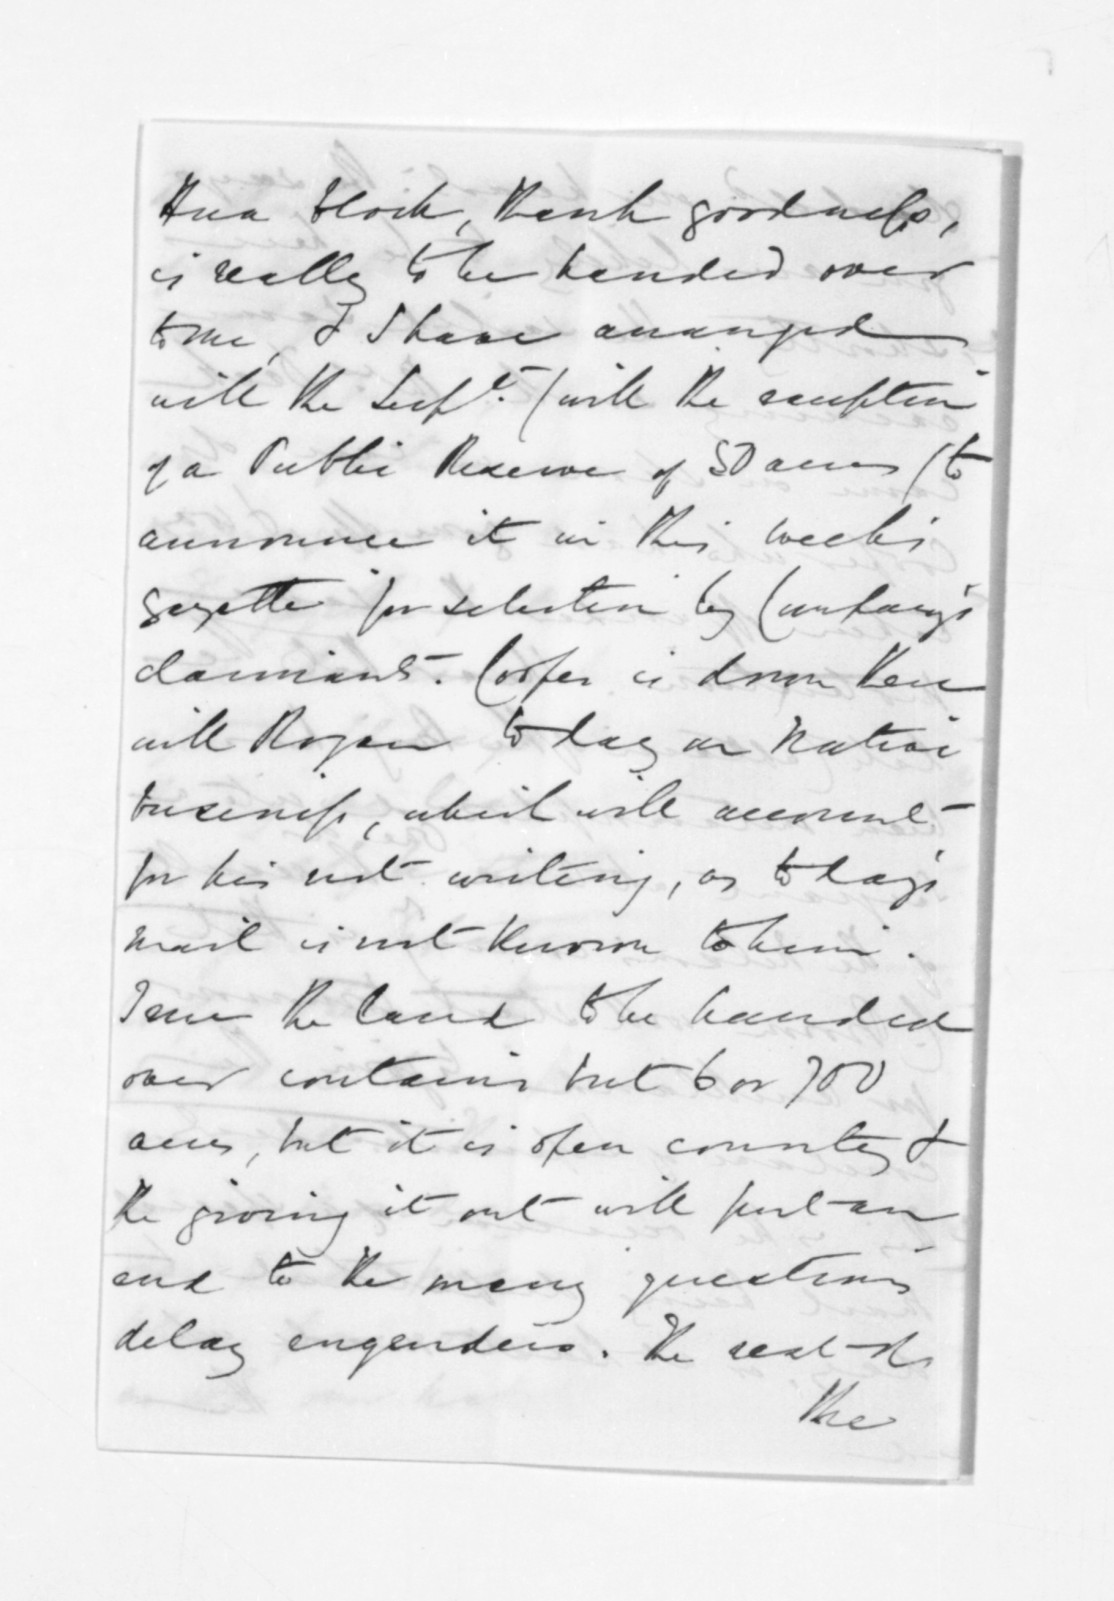 Hua Block, thank goodness,
is really to be handed over
to me, & I have arranged
with the Supt. (with the exception
of a Public Reserve of 50 acres) to
announce it in this week's
gazette for selection by Company's
claimants. Cooper is down there
with Rogan today on Native
business, which will account
for his not writing, as today's
mail is not known to him.
True the land to be handed
over contains but 6 or 700
acres, but it is open country &
the giving it out will put an
end to the many questions
delay engenders. The rest of
the